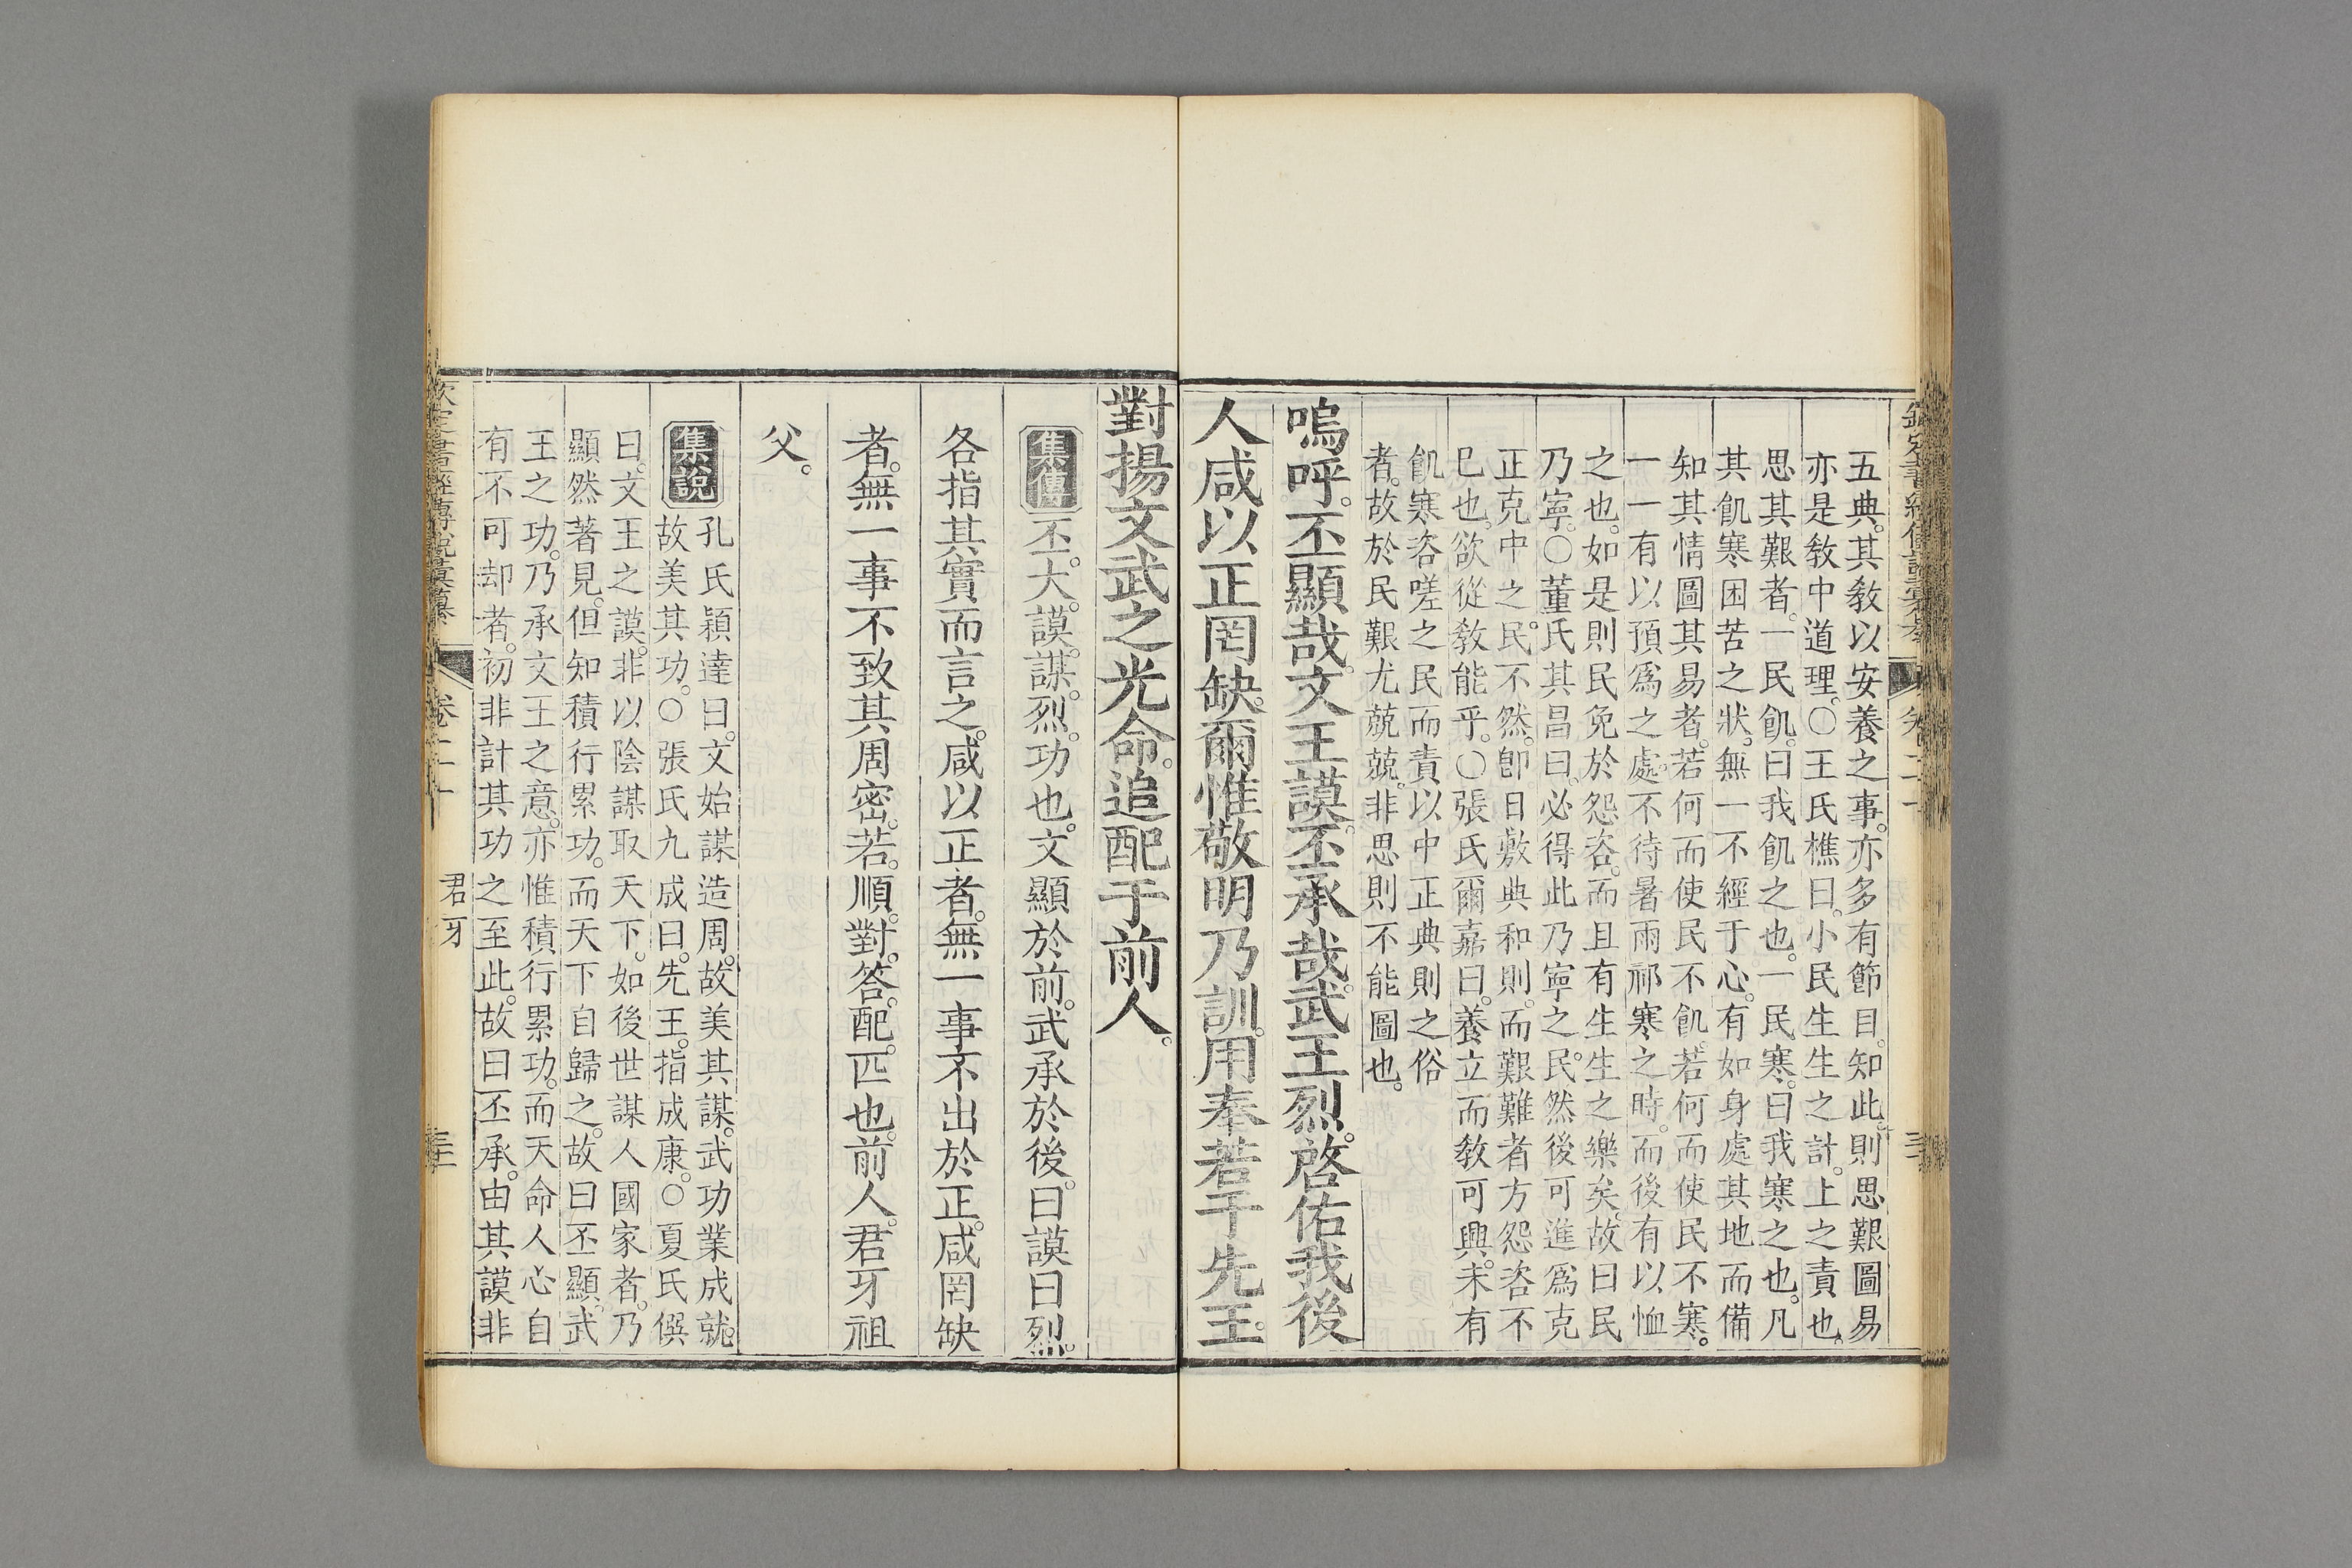 五典。其敎以安養之事。亦多有節目。知此。則思艱圖易
亦是敎中道理。○王氏樵曰。小民生生之計。上之責也。
思其艱者。一民飢。曰我飢之也。一民寒。曰我寒之也。凡
其飢寒困苦之狀。無一不經于心。有如身處其地而備
知其情圖其易者。若何而使民不飢。若何而使民不寒。
一一有以預爲之處。不待暑雨祁寒之時。而後有以恤
之也。如是則民免於怨咨。而且有生生之樂矣。故曰民
乃寧。○董氏其昌曰。必得此乃寧之民。然後可進爲克
正克中之民。不然。卽日敷典和則。而艱難者方怨咨不
已也。欲從敎能乎。○張氏爾嘉曰。養立而敎可興。未有
飢寒咨嗟之民而責以中正典則之俗
者。故於民艱尤兢兢。非思則不能圖也。
嗚呼。丕顯哉。文王謨。丕承哉。武王烈。啓佑我後
人咸以正罔缺。爾惟敬明乃訓。用奉若于先王。
對揚文武之光命。追配于前人。
集傳 丕。大。謨。謀。烈。功也。文顯於前。武承於後。曰謨曰烈。
各指其實而言之。咸以正者。無一事不出於正。咸罔缺
者。無一事不致其周密。若。順。對。答。配。匹也。前人。君牙祖
父。
集說 孔氏穎達曰。文始謀造周。故美其謀。武功業成就。
故美其功。○張氏九成曰。先王。指成康。○夏氏僎
曰。文王之謨。非以陰謀取天下。如後世謀人國家者。乃
顯然著見。但知積行累功。而天下自歸之。故曰丕顯。武
王之功。乃承文王之意。亦惟積行累功。而天命人心自
有不可却者。初非計其功之至此。故曰丕承。由其謨非
欽定書經傳說彙纂 卷二十一 君牙 三二